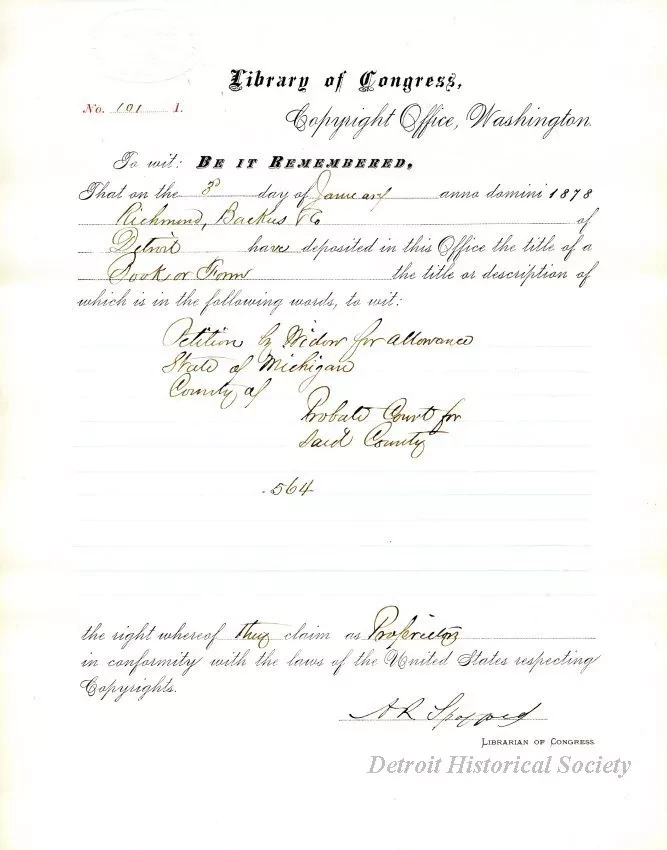 Library of Congress,
No. 101 I.
Copyright Office, Washington.
To wit: BE IT REMEMBERED,
That on the 3d day of January anno domini 1878
Richmond, Backus & Co of
Detroit have deposited in this Office the title of a
Book or Form the title or description of
which is in the following words, to wit:
Petition by Widow for allowance
State of Michigan
County of
Probate Court for
Said County
.564
the right whereof they claim as Proprietors
in conformity with the laws of the United States respecting
Copyrights.
A R Spofford
LIBRARIAN OF CONGRESS.
Detroit Historical Society